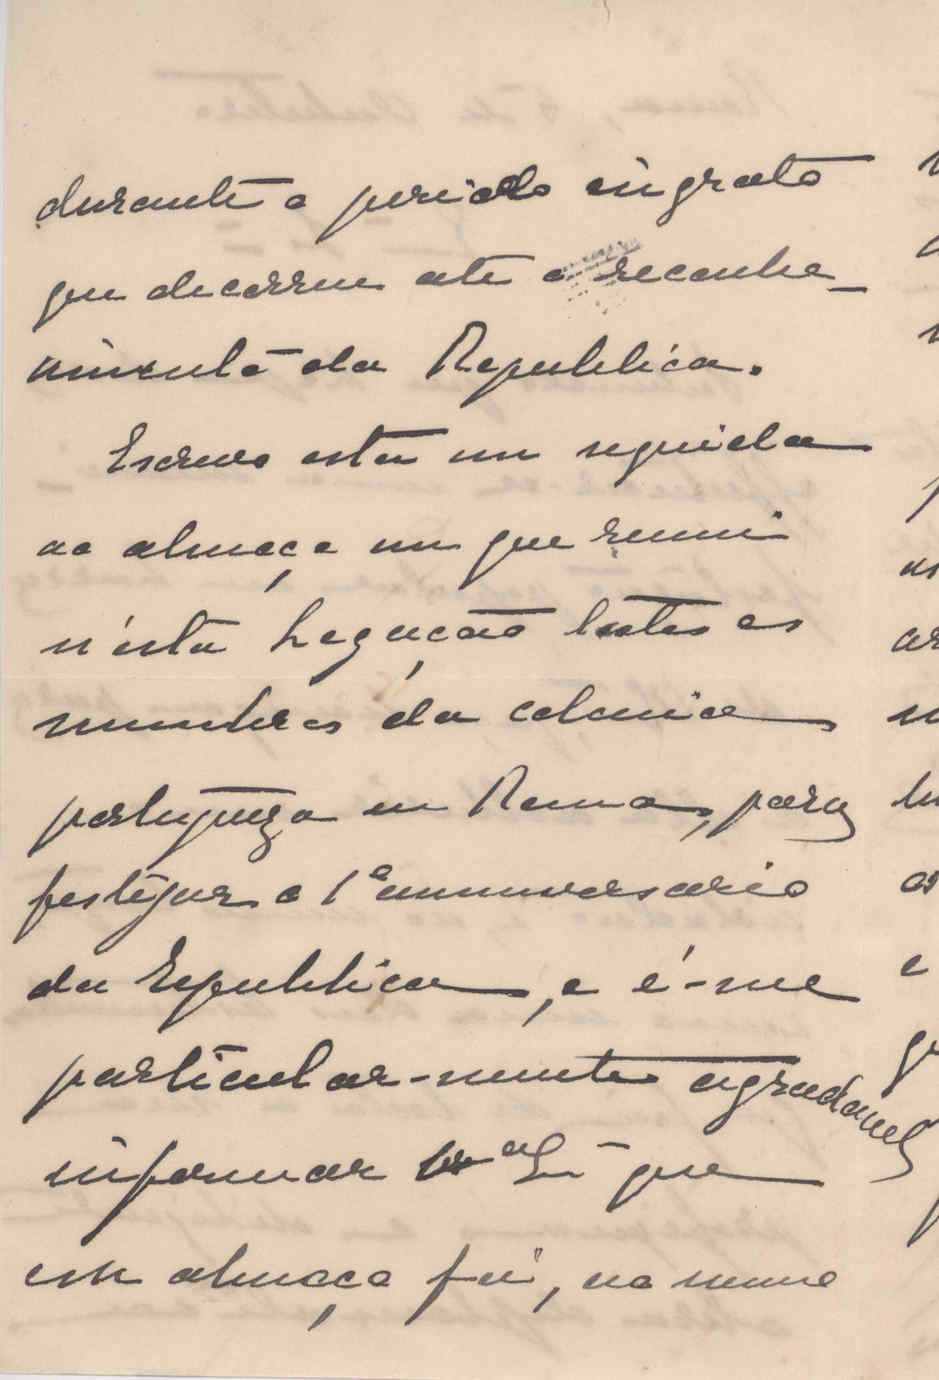 durante o periodo ingrato
que decorreu até o reconhe-
cimento da Republica.
Escrevo esta em seguida
ao almoço em que reuni
n'esta Legação todos os
membros da colonia
portugueza em Roma, para
festejar o 1º anniversario
da Republica, e é-me
particular-mente agradavel
informar que
esse almoço foi, no meio